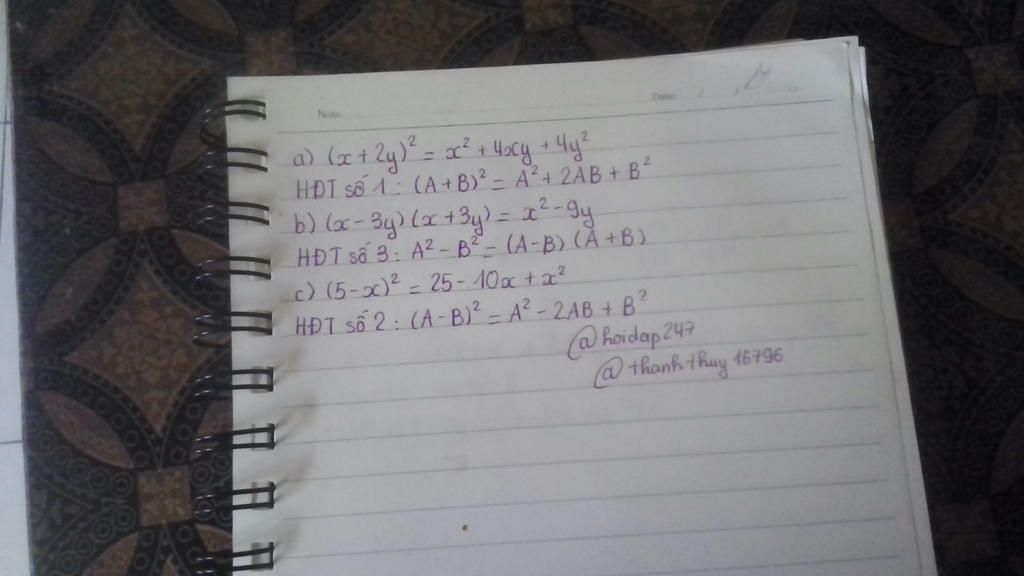 Note:
Date:
a) (x + 2y)² = x² + 4xy + 4y²
HĐT số 1 : (A + B)² = A² + 2AB + B²
b) (x - 3y) (x + 3y) = x² - 9y
HĐT số 3 : A² - B² = (A - B) (A + B)
c) (5 - x)² = 25 - 10x + x²
HĐT số 2 : (A - B)² = A² - 2AB + B²
@hoidap247
@thanhthuy16796